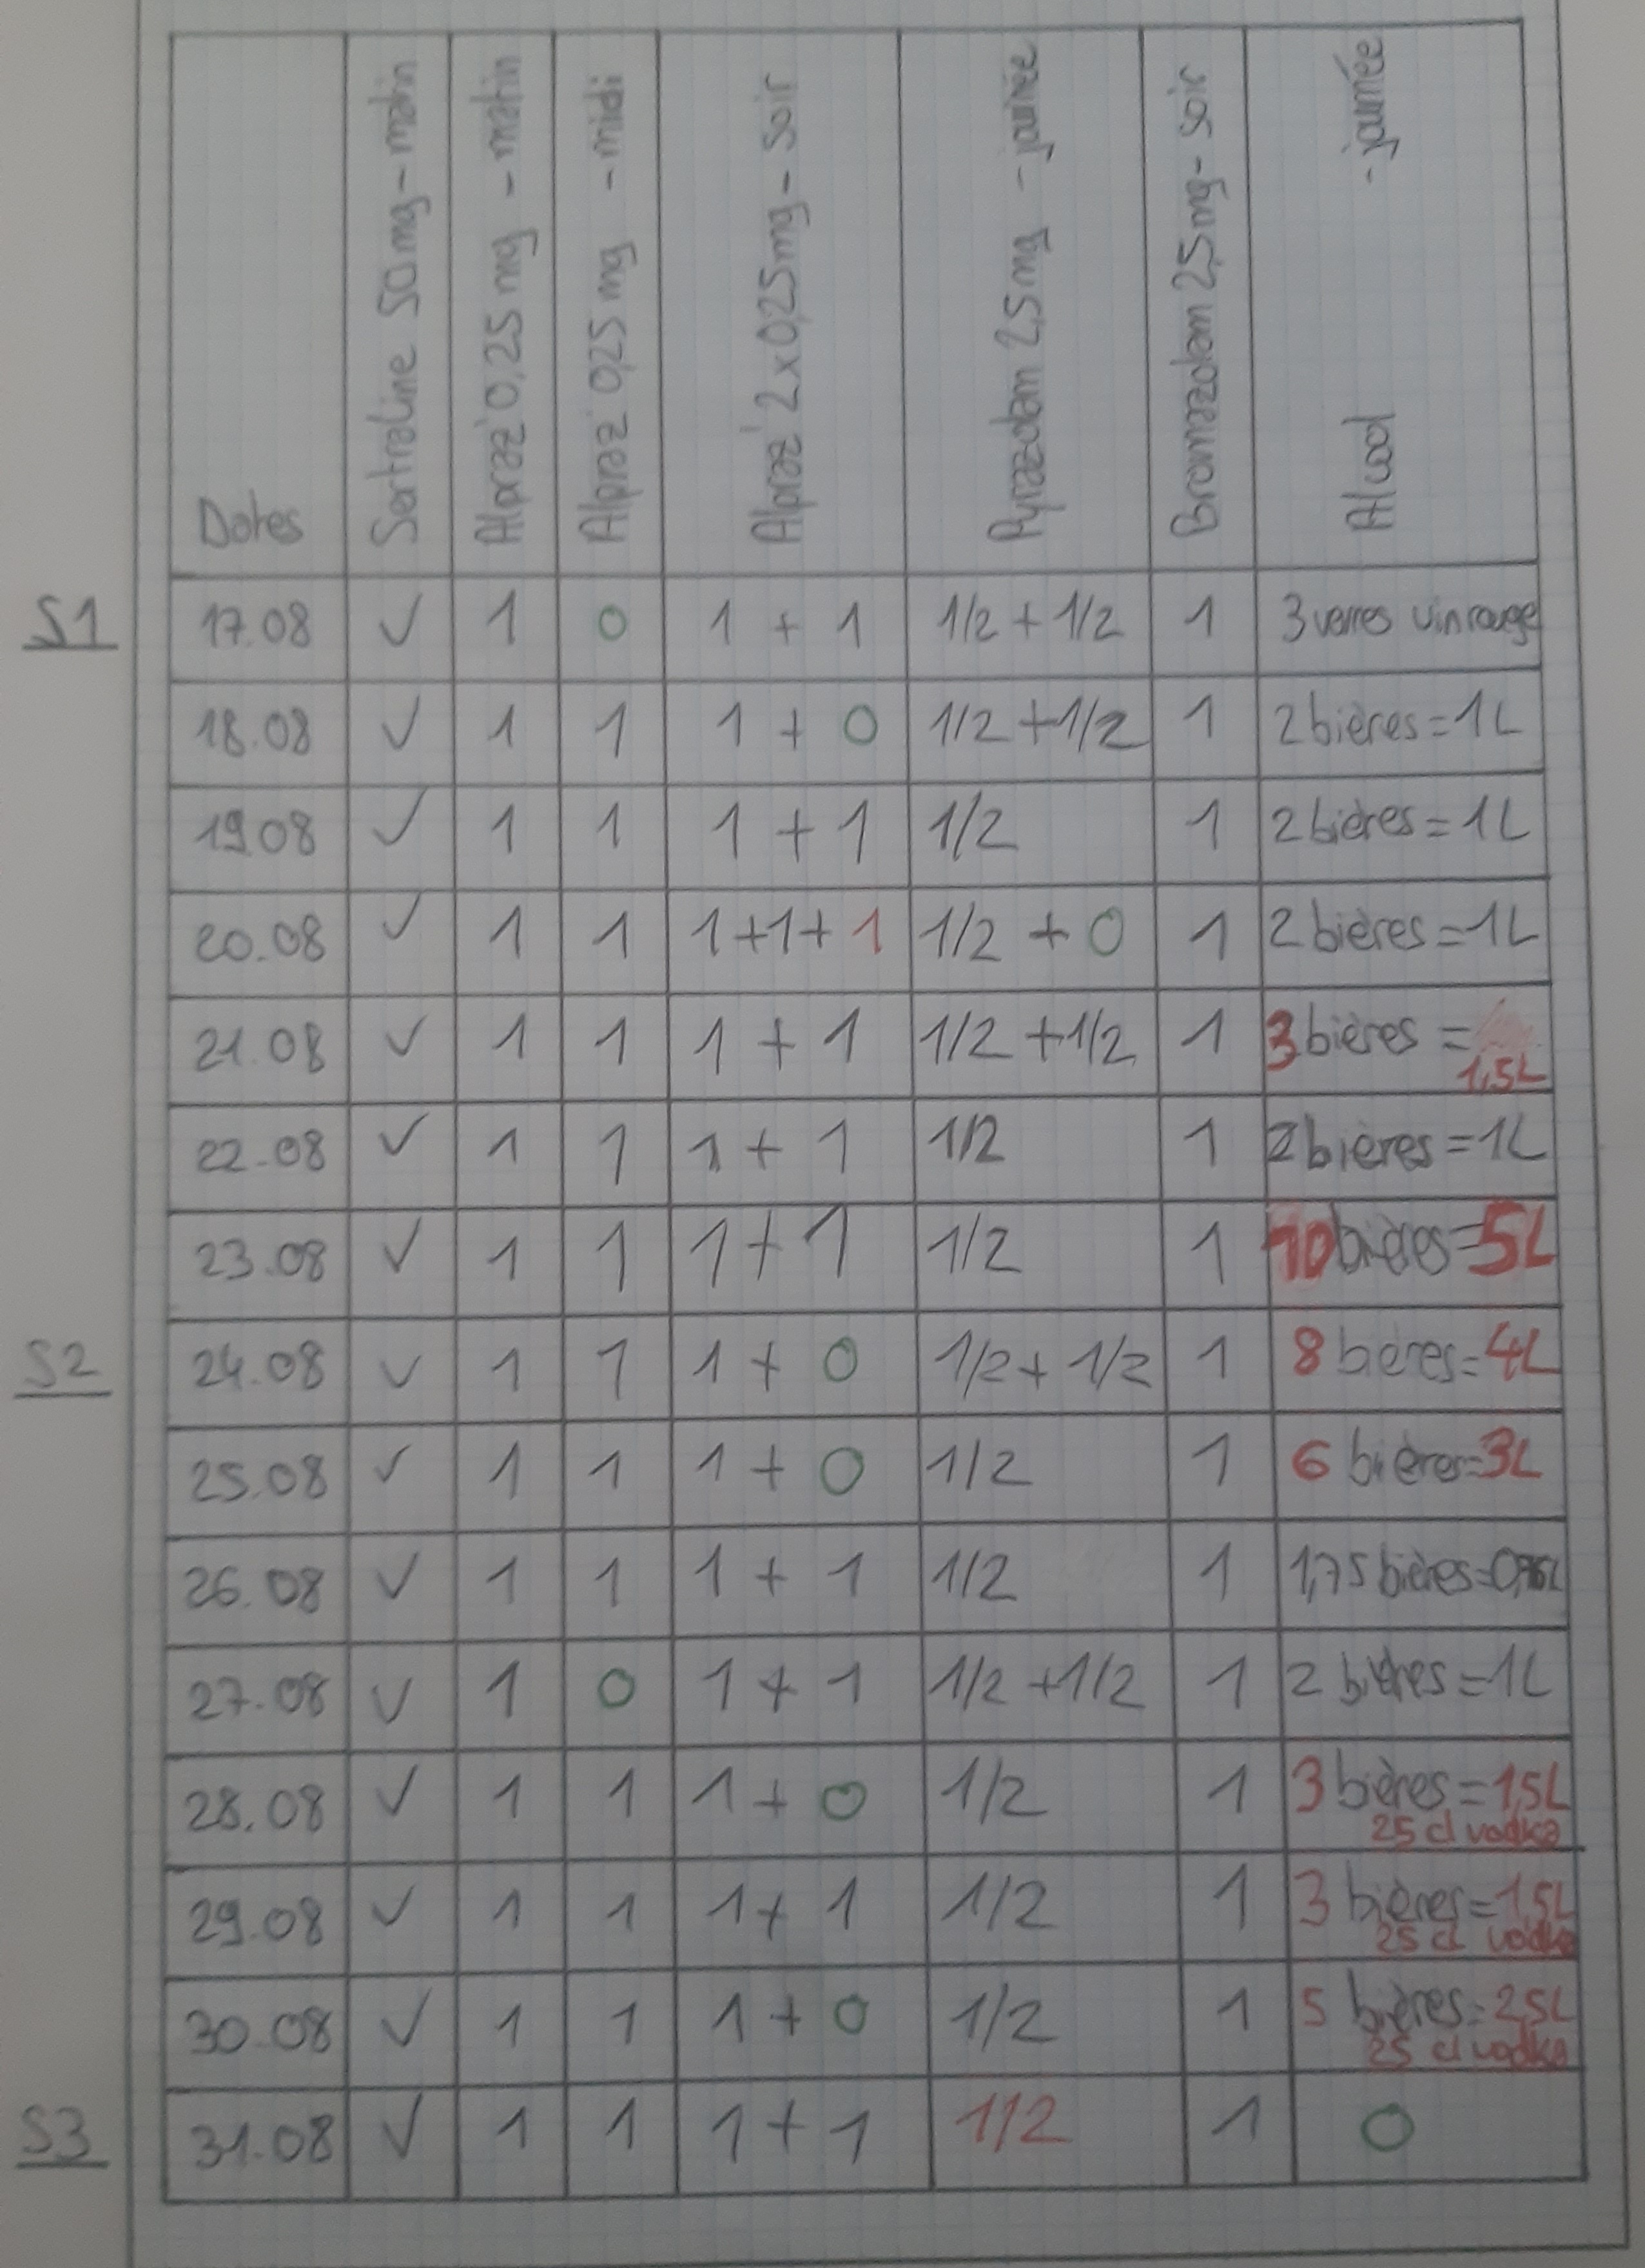 Dates | Sertraline 50mg - matin | Alpraz' 0,25 mg - matin | Alpraz' 0,25 mg - midi | Alpraz' 2x0,25mg - soir | Pyrazolam 2,5mg - journée | Bromazolam 2,5mg - soir | Alcool - journée
S1 17.08 ✓ 1 0 1 + 1 1/2 + 1/2 1 3 verres vin rouge
18.08 ✓ 1 1 1 + 0 1/2 + 1/2 1 2 bières = 1L
19.08 ✓ 1 1 1 + 1 1/2 1 2 bières = 1L
20.08 ✓ 1 1 1+1+1 1/2 + 0 1 2 bières = 1L
21.08 ✓ 1 1 1 + 1 1/2 + 1/2 1 3 bières =
1,5L
22.08 ✓ 1 1 1 + 1 1/2 1 2 bières = 1L
23.08 ✓ 1 1 1 + 1 1/2 1 10 bières = 5L
S2 24.08 ✓ 1 1 1 + 0 1/2 + 1/2 1 8 bières = 4L
25.08 ✓ 1 1 1 + 0 1/2 1 6 bières = 3L
26.08 ✓ 1 1 1 + 1 1/2 1 1,75 bières =
27.08 ✓ 1 0 1 + 1 1/2 + 1/2 1 2 bières = 1L
28.08 ✓ 1 1 1 + 0 1/2 1 3 bières = 1,5L
25 cl vodka
29.08 ✓ 1 1 1 + 1 1/2 1 3 bières = 1,5L
25 cl vodka
30.08 ✓ 1 1 1 + 0 1/2 1 5 bières = 2,5L
25 cl vodka
S3 31.08 ✓ 1 1 1 + 1 1/2 1 0